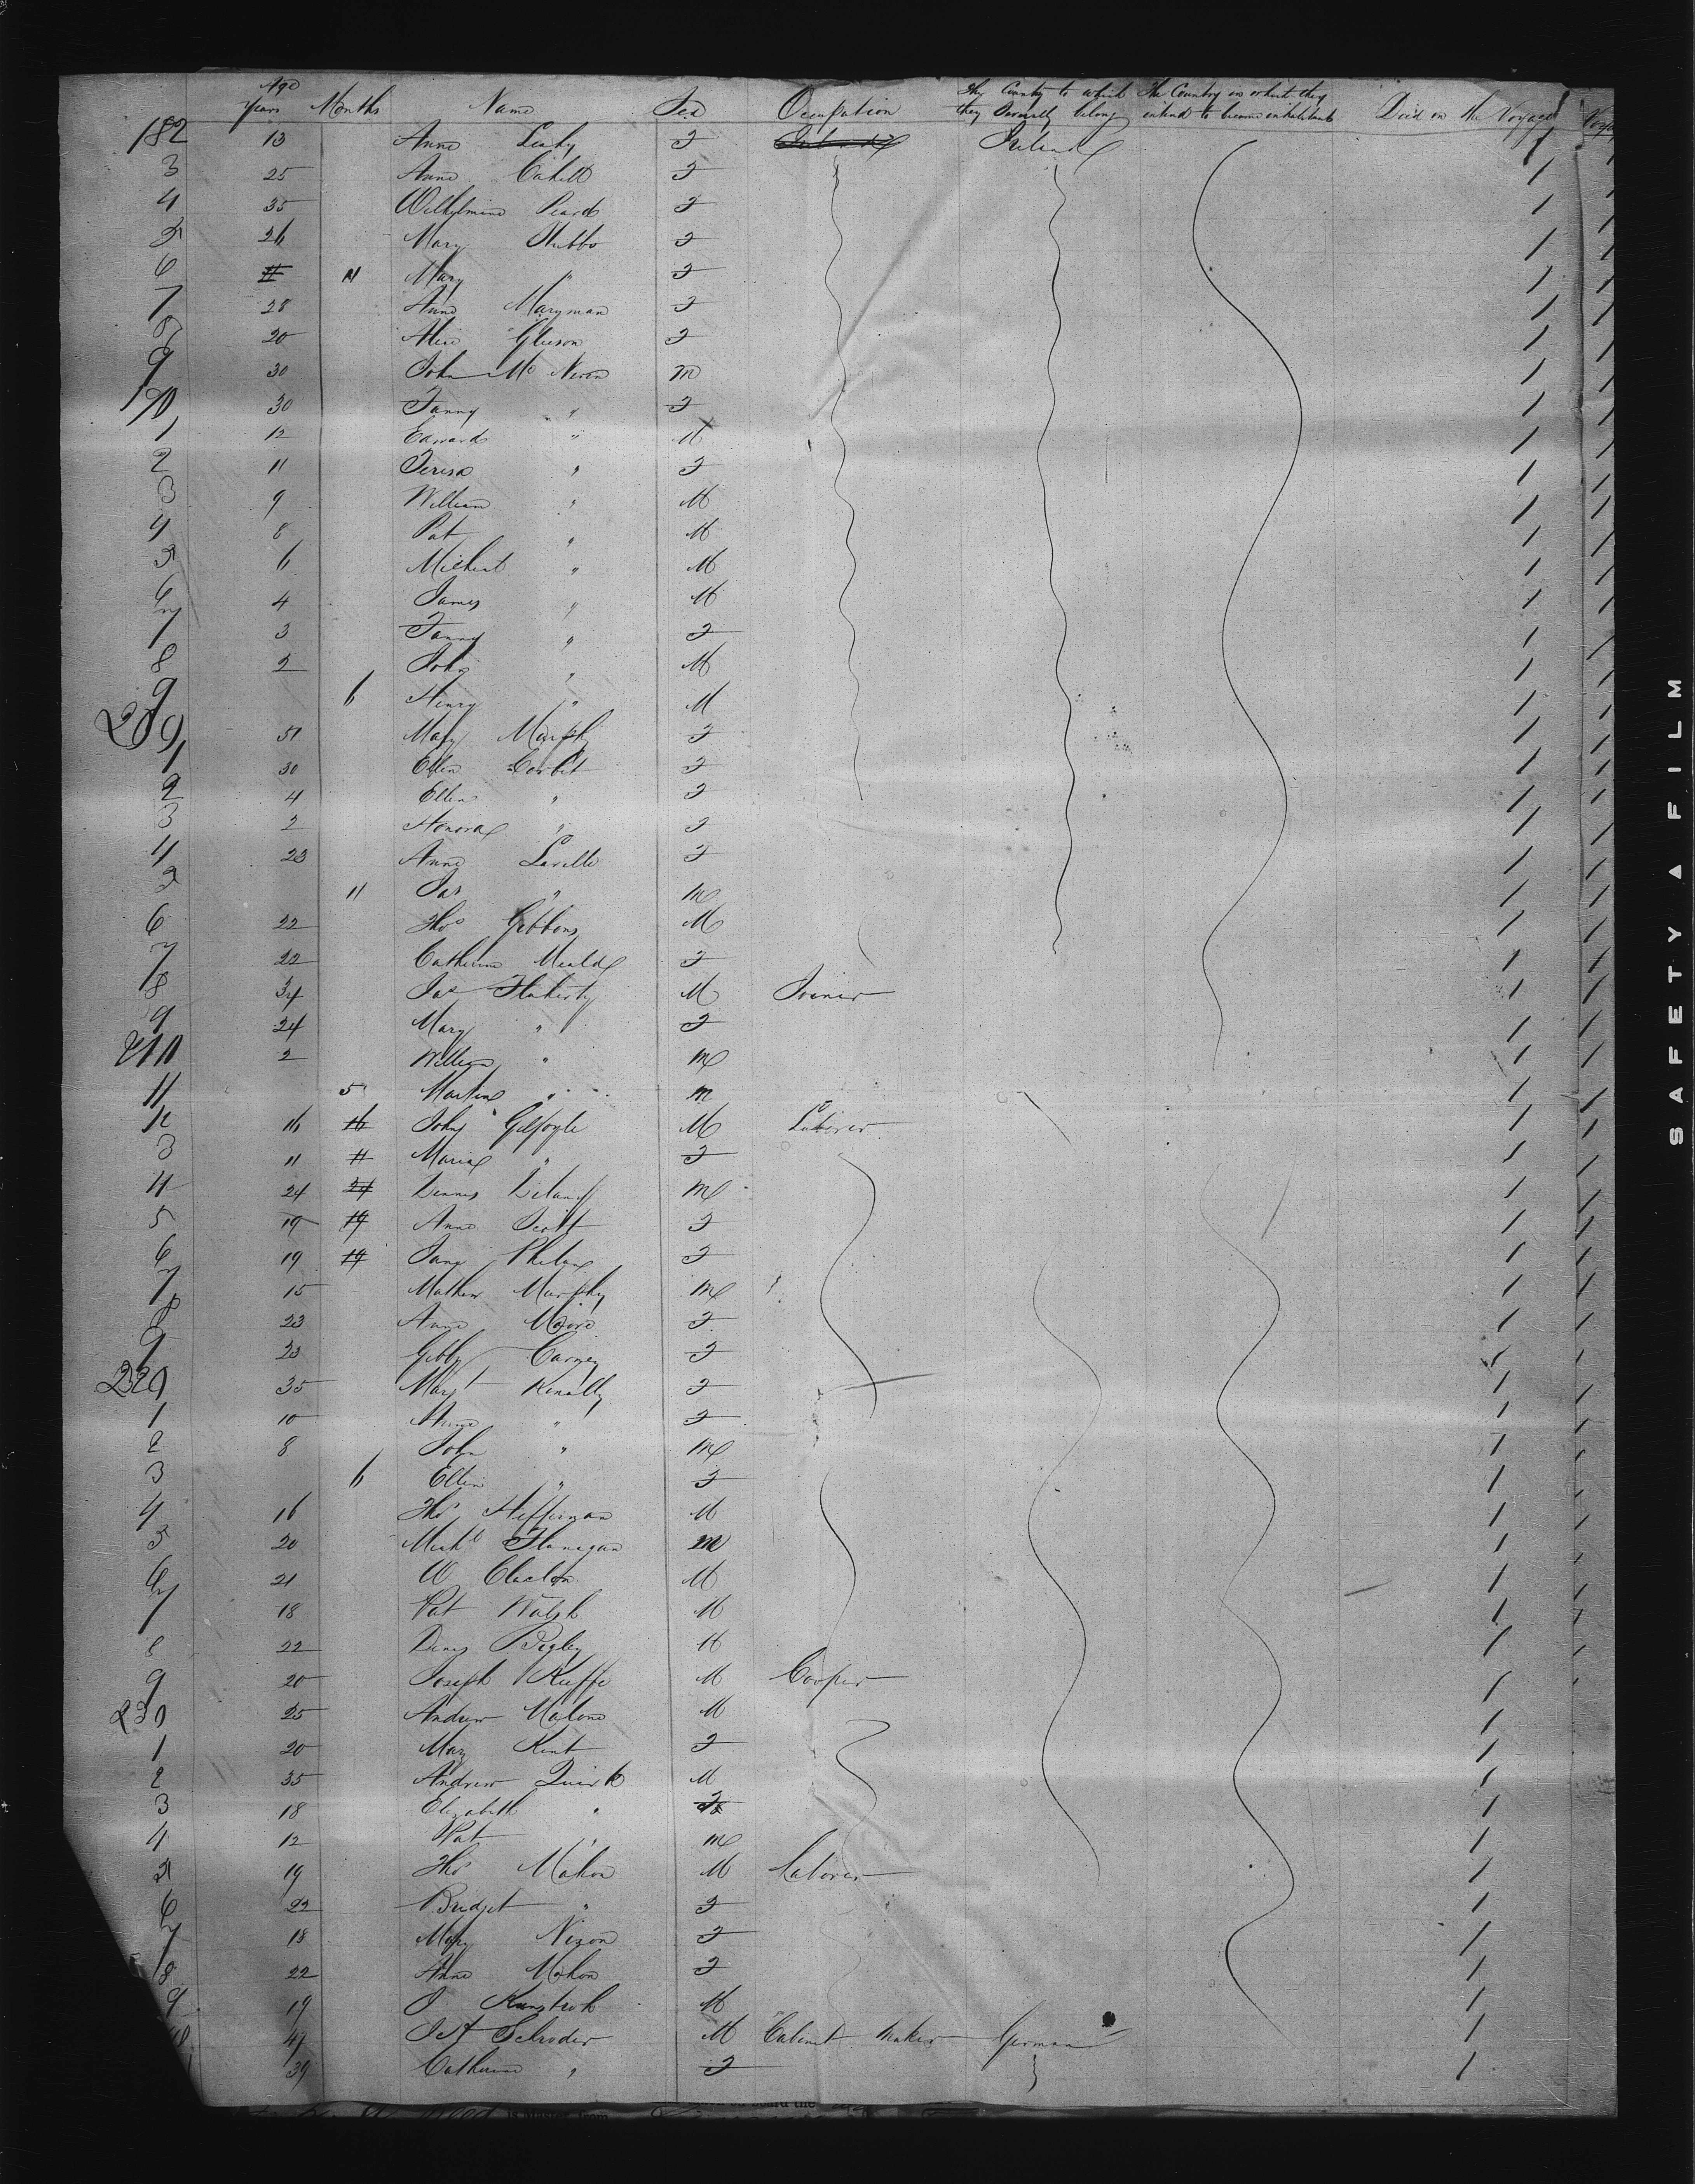 Age
Years Months Name Sex Occupation The Country to which they severally belong The Country in which they intend to become inhabitants Died on the Voyage
182 13 Anne Leahy F Ireland
3 25 Anne Cahill F
4 35 Wilhelmina F
5 26 Mary Stubbs F
6 11 Mary " F
7 28 Anne Maryman F
8 20 Alice Gleeson F
9 30 John Mc M
190 30 Fanny " F
1 12 Edward " M
2 11 Teresa " F
3 9 William " M
4 8 Pat " M
5 6 Michael " M
6 4 James " M
7 3 Fanny " F
8 2 John " M
9 6 Henry " M
200 Mary Murphy F
1 30 Ellen Corbit F
2 4 Ellen " F
3 2 Honora " F
4 23 Anne Lavelle F
5 11 Jas " M
6 22 Thos Gibbons M
7 22 Catherine F
8 34 Jas Flaherty M Joiner
9 24 Mary " F
210 2 William " M
11 5 Martin " M
12 16 16 John Gilfoyle M Laborer
3 11 11 Maria " F
4 24 24 Dennis M
5 19 19 Anne Scott F
6 19 19 Jane Phelan F
7 15 Mathew Murphy M
8 23 Anne Moore F
9 23 Carney F
220 35 Margt Kenally F
1 10 Anne " F
2 8 John " M
3 6 Ellen " F
4 16 Thos Heffernan M
5 20 Michl Flanegan M
6 21 W M
7 18 Pat Walsh M
8 22 Denis Begley M
9 20 Joseph Keeffe M Cooper
230 25 Andrew Malone M
1 20 Mary Kent F
2 35 Andrew Quirk M
3 18 Elizabeth " F
4 12 Pat " M
5 19 Thos Mahon M Laborer
6 22 Bridget " F
7 18 Mary Nixon F
8 22 Anne Mahon F
9 19 J M
Schroder M Cabinet Maker German
39 Catherine " F
on board the
is Master, from
SAFETY FILM